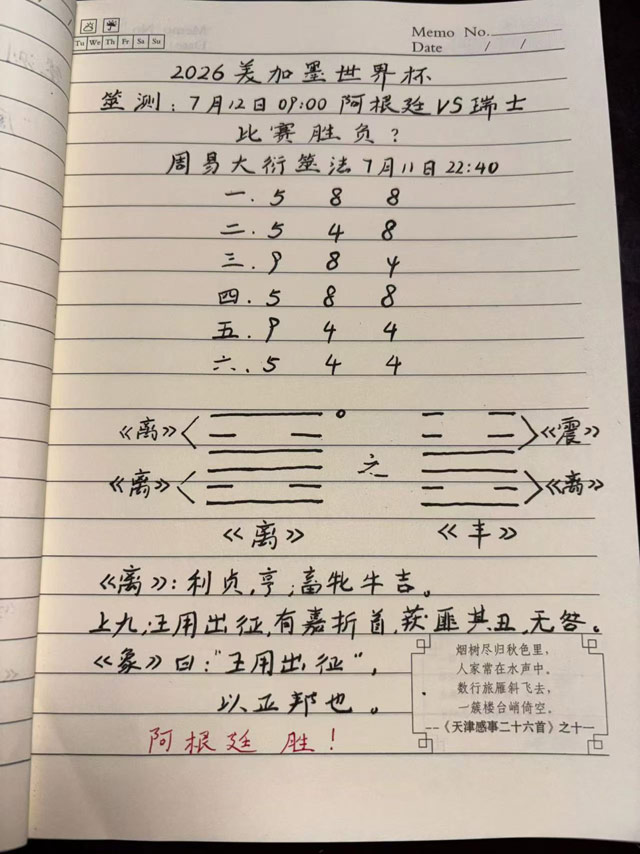 Memo No.
Tu We Th Fr Sa Su
Date / /
2026美加墨世界杯
筮测：7月12日09:00 阿根廷VS瑞士
比赛胜负？
周易大衍筮法7月11日22:40
一．5 8 8
二．5 4 8
三．9 8 4
四．5 8 8
五．9 4 4
六．5 4 4
《离》 《震》
《离》 之 《离》
《离》 《丰》
《离》：利贞，亨；畜牝牛吉。
上九；王用出征，有嘉折首，获匪其丑，无咎。
《象》曰："王用出征"，
以正邦也。
阿根廷 胜！
烟树尽归秋色里，
人家常在水声中。
数行旅雁斜飞去，
一簇楼台峭倚空。
--《天津感事二十六首》之十一